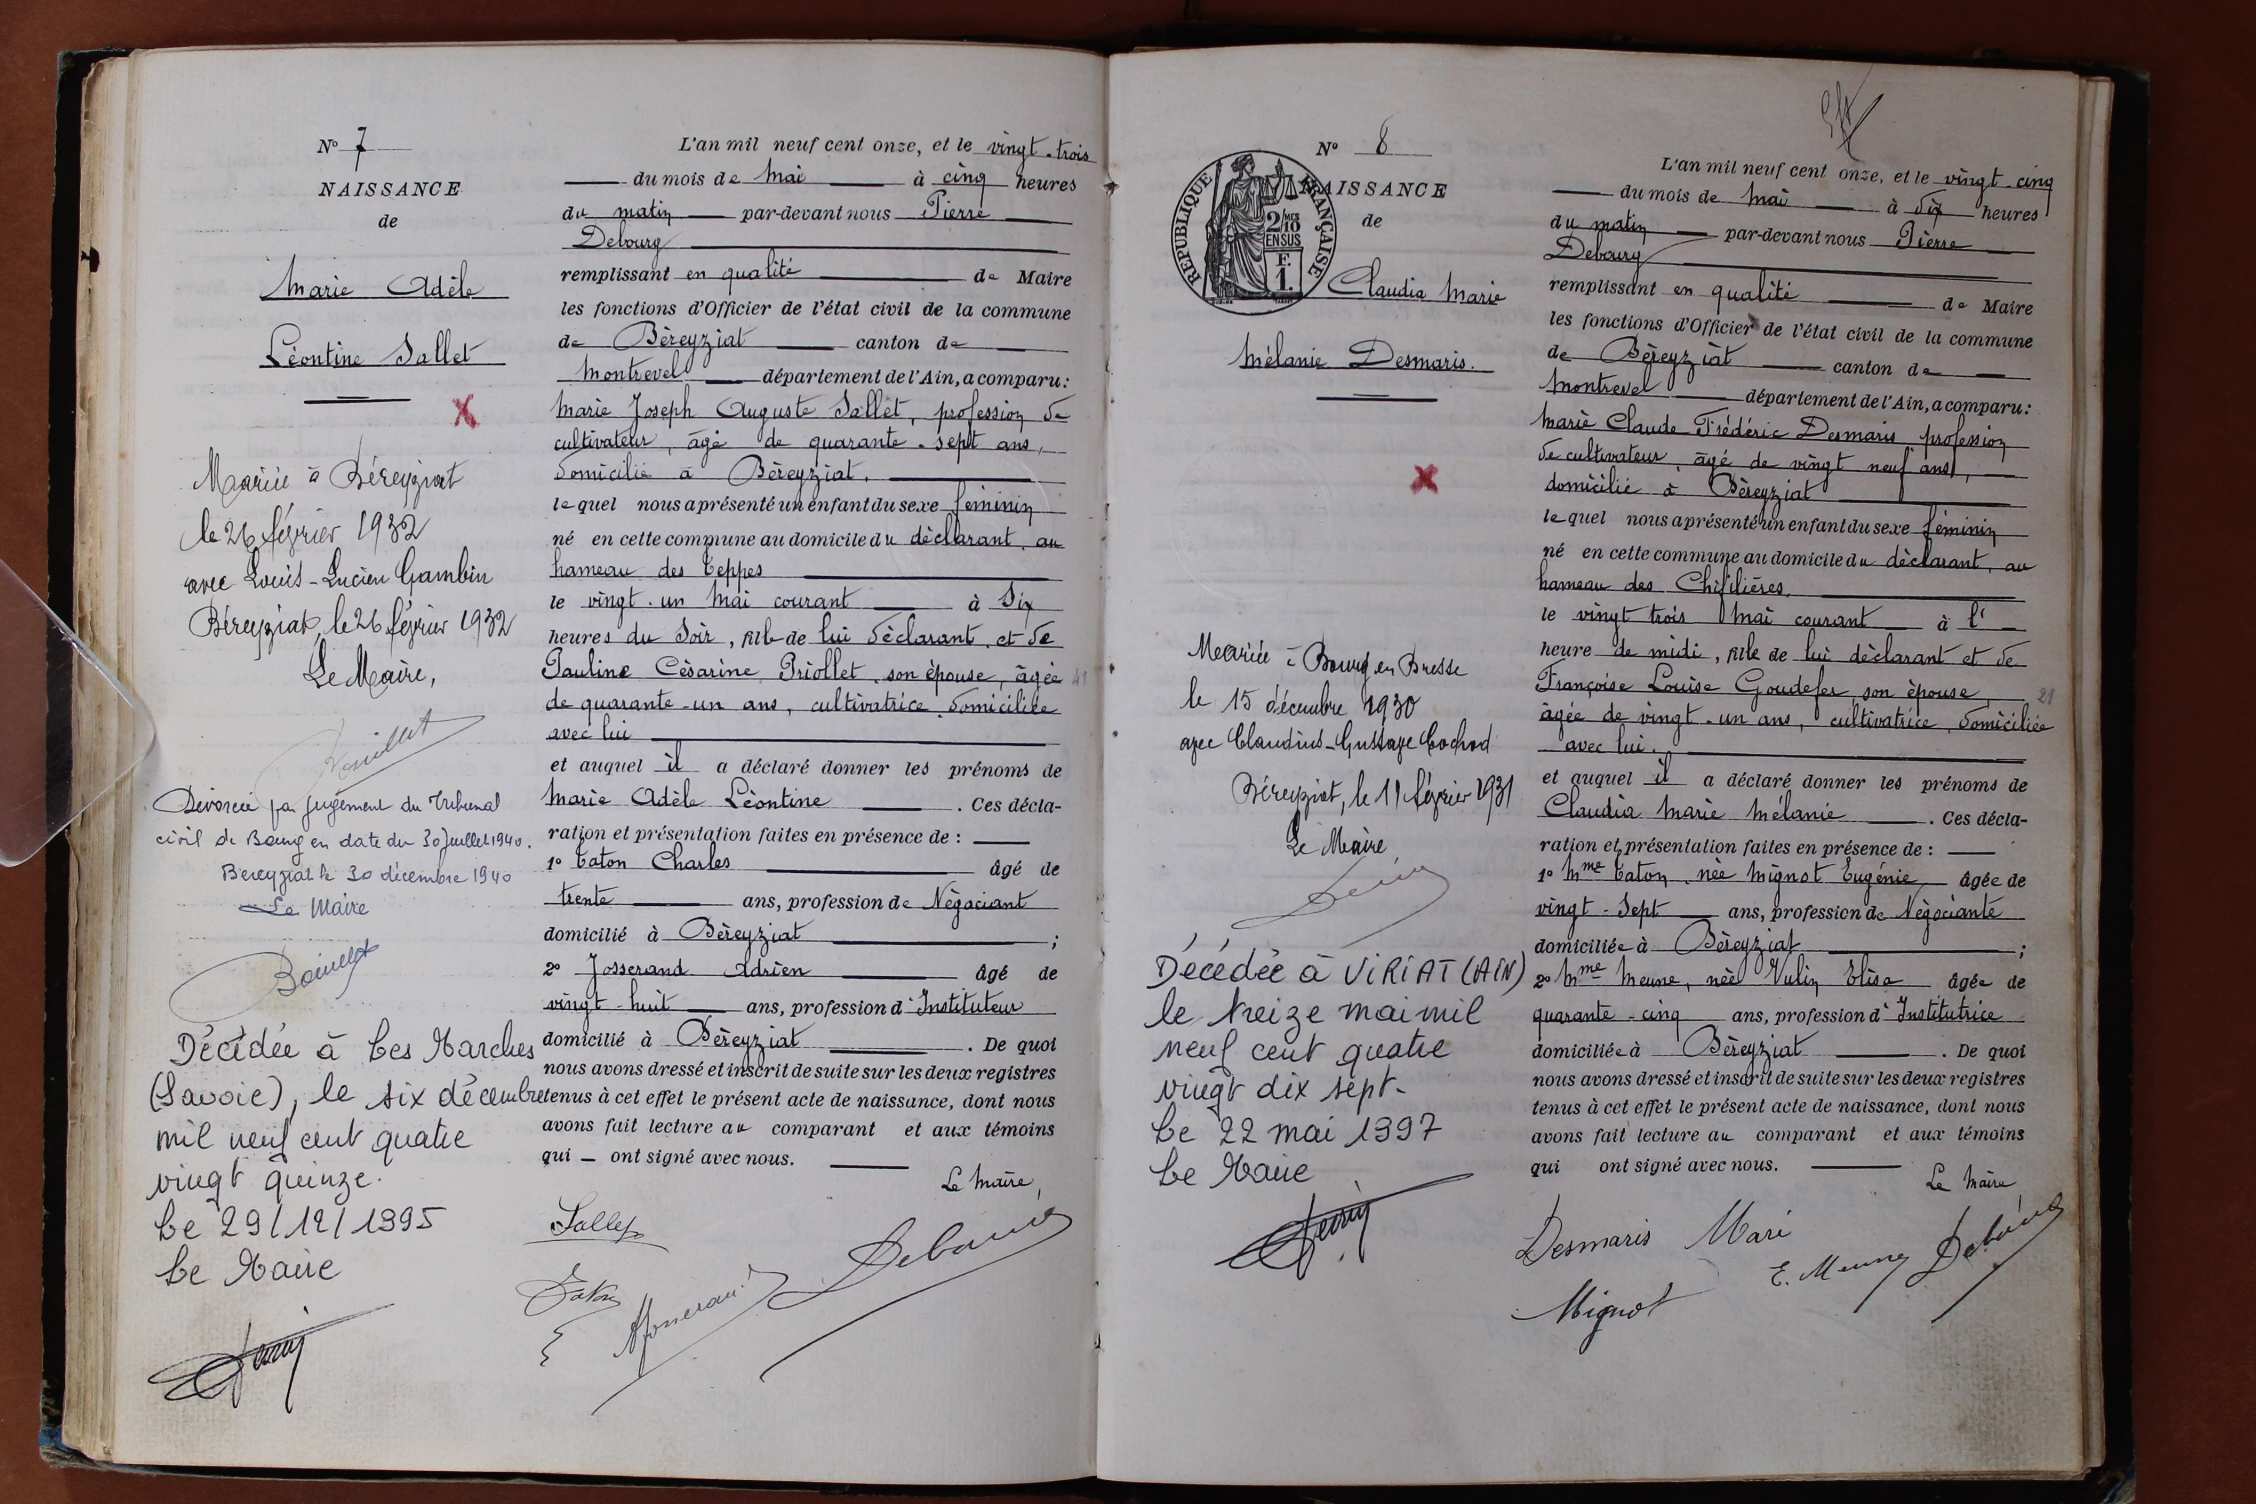 N° 7
NAISSANCE
de
Marie Adèle
Léontine Sallet
X
Mariée à Béreyziat
le 26 février 1932
avec Louis-Lucien Gambin
Béreyziat, le 26 février 1932
Le Maire,
Divorcée par jugement du Tribunal
civil de Bourg en date du 30 Juillet 1940.
Béreyziat le 30 décembre 1940
Le Maire
Décédée à Les Marches
(Savoie), le six décembre
mil neuf cent quatre
vingt quinze.
Le 29/12/1995
Le Maire
L'an mil neuf cent onze, et le vingt-trois
du mois de Mai à cinq heures
du matin par-devant nous Pierre
Debourg
remplissant en qualité de Maire
les fonctions d'Officier de l'état civil de la commune
de Béreyziat canton de
Montrevel département de l'Ain, a comparu:
Marie Joseph Auguste Sallet, profession de
cultivateur, âgé de quarante-sept ans,
domicilié à Béreyziat.
lequel nous a présenté un enfant du sexe féminin
né en cette commune au domicile du déclarant, au
hameau des Teppes
le vingt-un Mai courant à Six
heures du Soir, fille de lui déclarant et de
Pauline Césarine Priollet, son épouse, âgée 41
de quarante-un ans, cultivatrice, domiciliée
avec lui
et auquel il a déclaré donner les prénoms de
Marie Adèle Léontine . Ces décla-
ration et présentation faites en présence de :
1° Taton Charles âgé de
trente ans, profession de Négociant
domicilié à Béreyziat ;
2° Josserand Adrien âgé de
vingt-huit ans, profession d'Instituteur
domicilié à Béreyziat . De quoi
nous avons dressé et inscrit de suite sur les deux registres
tenus à cet effet le présent acte de naissance, dont nous
avons fait lecture au comparant et aux témoins
qui — ont signé avec nous.
Le Maire,
Sallet
Taton
Josserand
Debourg
N° 8
RÉPUBLIQUE FRANÇAISE
2/10 MES
EN SUS
F.
1.
NAISSANCE
de
Claudia Marie
Mélanie Desmaris.
X
Mariée à Bourg en Bresse
le 15 décembre 1930
avec Claudius-Gustave Cochod
Béreyziat, le 11 février 1931
Le Maire
Décédée à VIRIAT (AIN)
le treize mai mil
neuf cent quatre
vingt dix sept.
Le 22 mai 1997
Le Maire
L'an mil neuf cent onze, et le vingt-cinq
du mois de Mai à dix heures
du matin par-devant nous Pierre
Debourg
remplissant en qualité de Maire
les fonctions d'Officier de l'état civil de la commune
de Béreyziat canton de
Montrevel département de l'Ain, a comparu:
Marie Claude Frédéric Desmaris profession
de cultivateur, âgé de vingt neuf ans,
domicilié à Béreyziat
lequel nous a présenté un enfant du sexe féminin
né en cette commune au domicile du déclarant, au
hameau des Chifilières
le vingt trois Mai courant à l'
heure de midi, fille de lui déclarant et de
Françoise Louise Goudefer, son épouse 21
âgée de vingt-un ans, cultivatrice, domiciliée
avec lui.
et auquel il a déclaré donner les prénoms de
Claudia Marie Mélanie . Ces décla-
ration et présentation faites en présence de :
1° Mme Taton, née Mignot Eugénie âgée de
vingt-Sept ans, profession de Négociante
domiciliée à Béreyziat ;
2° Mme Meune, née Vulin Elisa âgée de
quarante-cinq ans, profession d'Institutrice
domiciliée à Béreyziat . De quoi
nous avons dressé et inscrit de suite sur les deux registres
tenus à cet effet le présent acte de naissance, dont nous
avons fait lecture au comparant et aux témoins
qui ont signé avec nous.
Le Maire
Desmaris Mari
E. Meune Debourg
Mignot